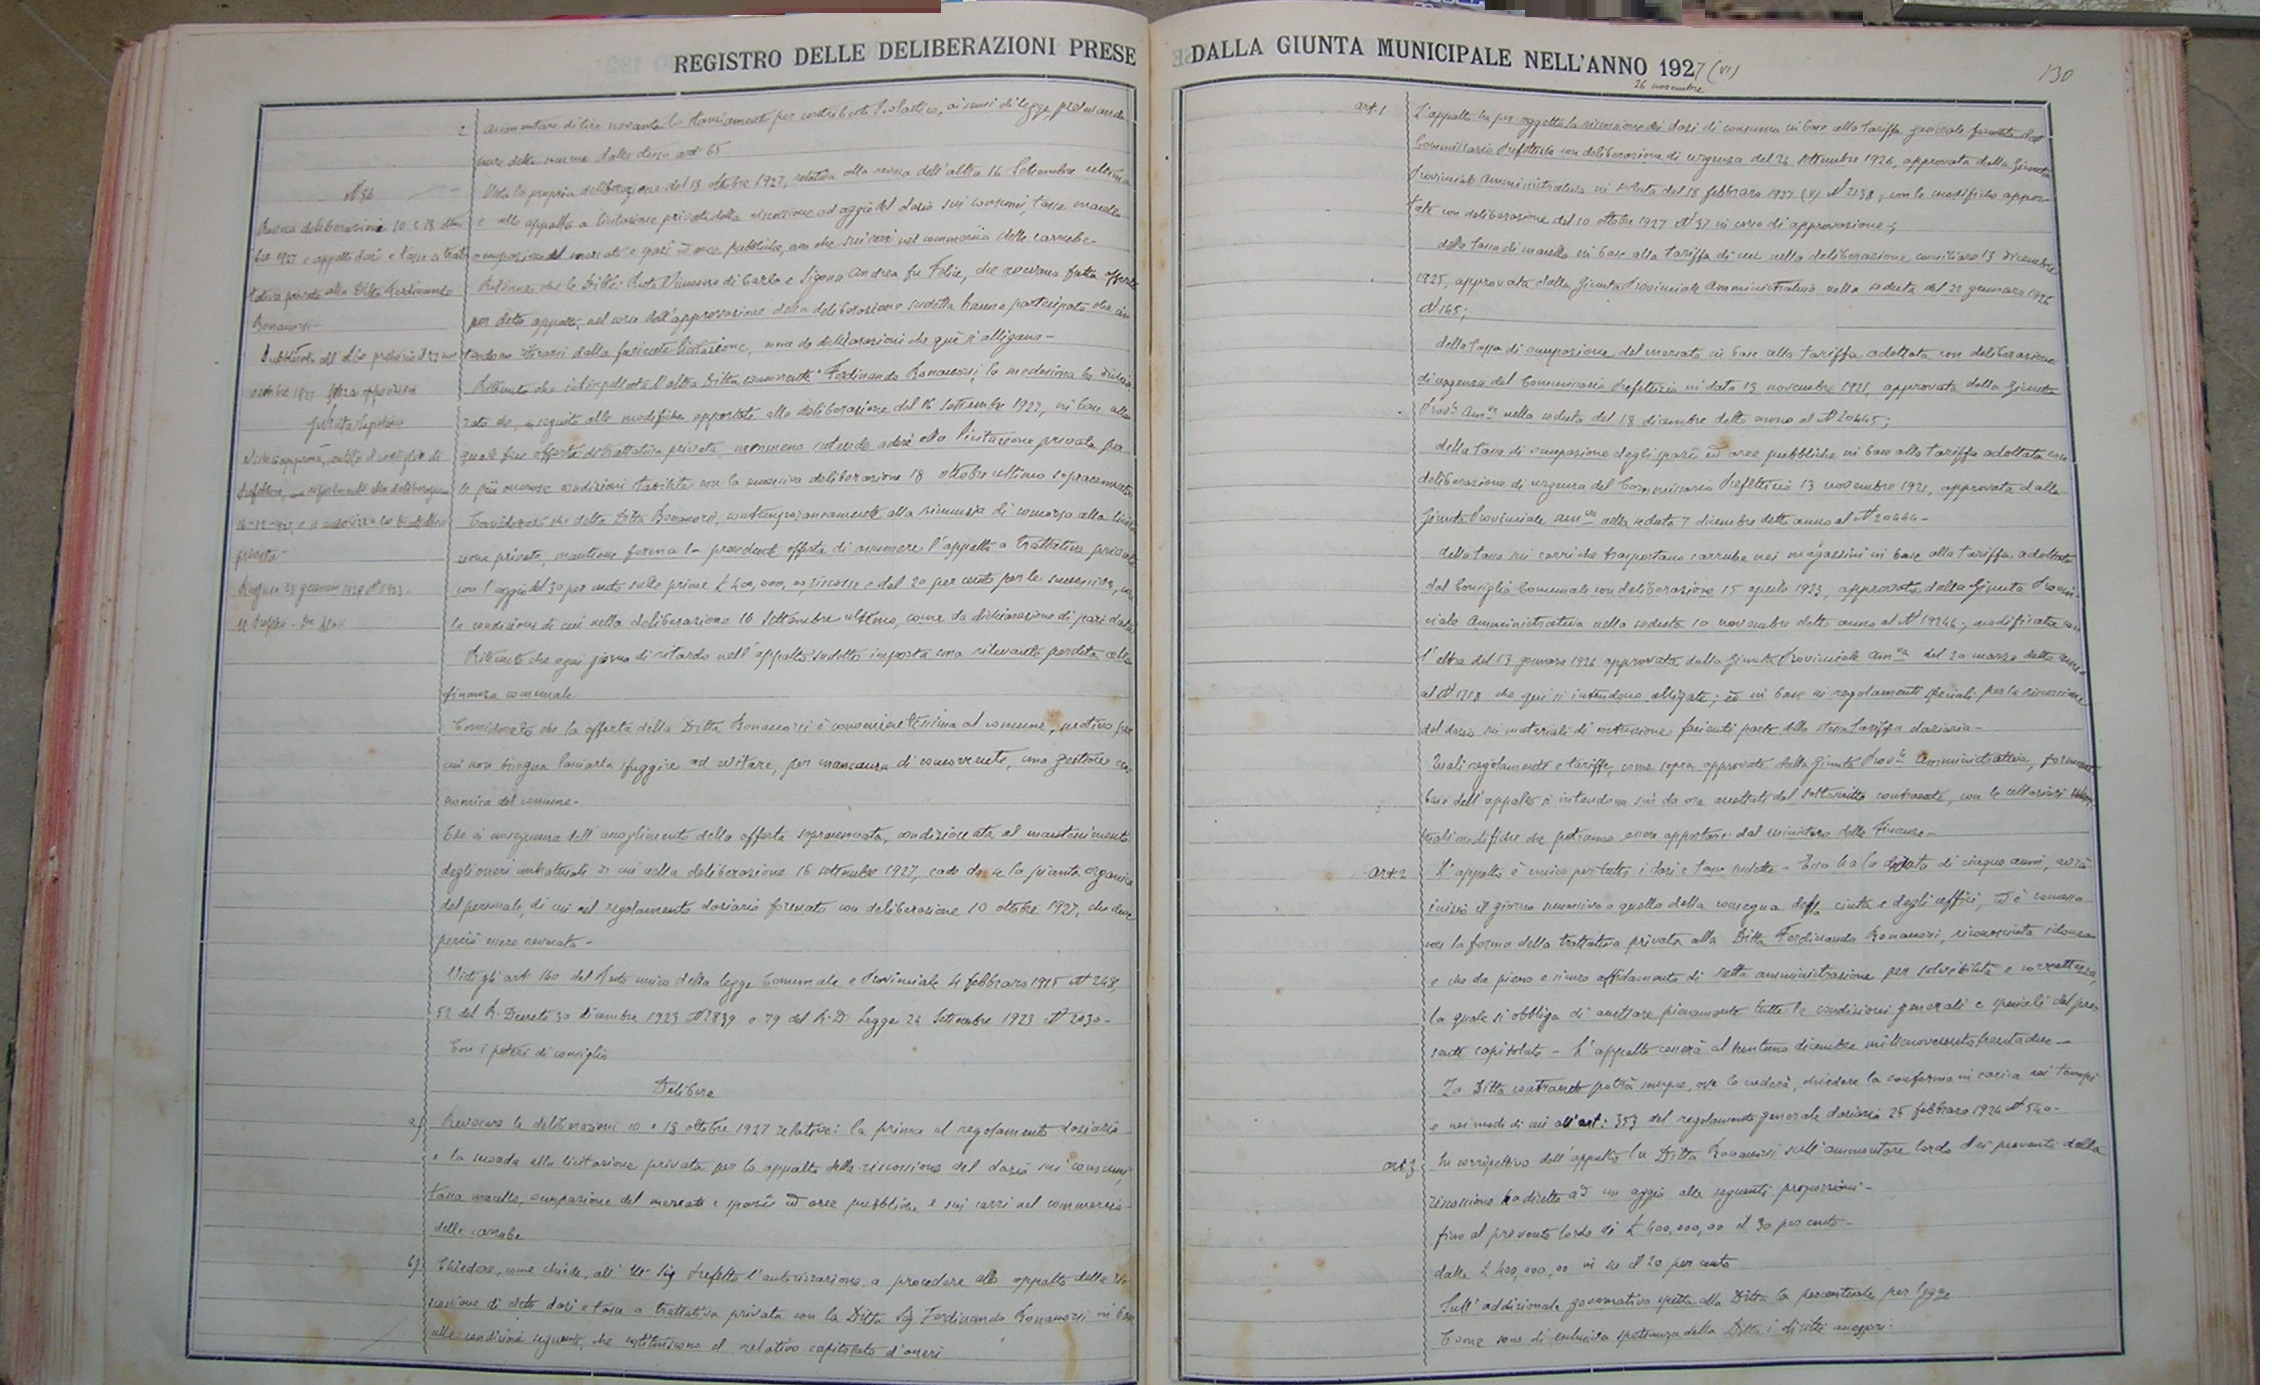 REGISTRO DELLE DELIBERAZIONI PRESE
2 aumentare di lire novanta lo stanziamento per contributo scolastico, ai sensi di legge,
della somma dallo stesso art 65
N 56
Revoca deliberazioni 10 e 18 otto
bre 1927 e appalto dazi e tasse a trat
tativa privata alla Ditta Ferdinando
Bonanorsi -
Prefettura,
privata -
Ragusa 27 gennaio 1928 N
Il Prefetto
Vista la propria deliberazione del 18 ottobre 1927, relativa alla revoca dell'altra 16 Settembre ultimo
e allo appalto a licitazione privata della riscossione ad aggio del dazio sui consumi, tassa macello
occupazione del mercato e spazi ed aree pubbliche, non che sui carri nel commercio delle carrube
Ritenuto che le Ditte: Rota Vincenzo di Carlo e Sigona Andrea fu Felice, che avevano fatta offerta
per detto appalto, nel corso dell'approvazione della deliberazione sudetta hanno partecipato che in
tendono ritirarsi dalla fasciente licitazione, come da dichiarazioni che quì si alligano -
Ritenuto che interpellata l'altra Ditta concorrente Ferdinando Bonanorsi, la medesima ha dichia
rato che, in seguito alle modifiche apportate alla deliberazione del 16 settembre 1927, in base alla
quale fece offerta a trattativa privata, nemmeno intende aderire alla licitazione privata per
le più onerose condizioni stabilite con la successiva deliberazione 18 ottobre ultimo sopracennata
Considerato che detta Ditta Bonanorsi, contemporaneamente alla rinunzia di concorso alla licita
zione privata, mantiene ferma la precedente offerta di assumere l'appalto a trattativa privata
con l'aggio del 30 per cento sulle prime £ 400,000,00 riscosse e del 20 per cento per le successive, con
le condizioni di cui nella deliberazione 16 Settembre ultimo, come da dichiarazione di pari data
Ritenuto che ogni giorno di ritardo nell'appalto sudetto importa una rilevante perdita alla
finanza comunale
Considerato che la offerta della Ditta Bonanorsi è convenientissima al comune, motivo per
cui non bisogna lasciarla sfuggire ad evitare, per mancanza di concorrenti, una gestione eco
nomica del comune -
Che in conseguenza dell'accoglimento della offerta sopracennata, condizionata al mantenimento
degli oneri contrattuali di cui nella deliberazione 16 settembre 1927, cade da se la pianta organica
del personale, di cui nel regolamento daziario formato con deliberazione 10 ottobre 1927, che deve
perciò essere revocata -
Visti gli art 140 del Testo unico della legge Comunale e Provinciale 4 febbraro 1915 N 148,
52 del R. Decreto 30 dicembre 1923 N 2839 e 79 del R. D. Legge 24 Settembre 1923 N 2030 -
Con i poteri di consiglio
Delibera
a) Revocare le deliberazioni 10 e 18 ottobre 1927 relative: la prima al regolamento daziario
e la seconda alla licitazione privata per lo appalto della riscossione del dazio sui consumi,
tassa macello, occupazione del mercato e spazii ed aree pubbliche e sui carri nel commercio
delle carrube
b) Chiedere, come chiede, all' Ill° Sig Prefetto l'autorizzazione a procedere allo appalto della ri
scossione di detti dazi e tasse a trattativa privata con la Ditta Sig Ferdinando Bonanorsi in base
alle condizioni seguenti, che costituiscono il relativo capitolato d'oneri
DALLA GIUNTA MUNICIPALE NELL'ANNO 1927 (VI)
26 novembre
130
art. 1 L'appalto ha per oggetto la riscossione dei dazi di consumo in base alla tariffa generale formata dal
Commissario Prefettizio con deliberazione di urgenza del 24 settembre 1926, approvata dalla Giunta
Provinciale Amministrativa in seduta del 18 febbraro 1927 (V) N 2138, con le modifiche appor
tate con deliberazione del 10 ottobre 1927 N 37 in corso di approvazione;
della tassa di macello in base alla tariffa di cui nella deliberazione consiliare 13 dicembre
1925, approvata dalla Giunta Provinciale Amministrativa nella seduta del 22 gennaro 1926
N 145;
della tassa di occupazione del mercato in base alla tariffa adottata con deliberazione
di urgenza del Commissario Prefettizio in data 13 novembre 1921, approvata dalla Giunta
Prov.le Amm.va nella seduta del 18 dicembre detto anno al N 20445;
della tassa di occupazione degli spazii ed aree pubbliche in base alla tariffa adottata con
deliberazione di urgenza del Commissario Prefettizio 13 novembre 1921, approvata dalla
Giunta Provinciale Amm.va nella seduta 7 dicembre detto anno al N 20444 -
della tassa sui carri che trasportano carrube nei magazzini in base alla tariffa adottata
dal Consiglio Comunale con deliberazione 15 aprile 1923, approvata dalla Giunta Provin
ciale Amministrativa nella seduta 10 novembre detto anno al N 19246; modificata con
l'altra del 13 gennaro 1926 approvata dalla Giunta Provinciale Amm.va del 20 marzo detto anno
al N 1718 che qui si intendono alligate; ed in base ai regolamenti speciali per la riscossione
del dazio sui materiali di costruzione facienti parte della stessa tariffa daziaria -
Quali regolamenti e tariffe, come sopra approvate dalla Giunta Prov.le Amministrativa, formano
base dell'appalto si intendono sin da ora accettati dal sottoscritto contraente, con le ulteriori
modifiche che potranno essere apportate dal ministero delle Finanze -
Art. 2 L'appalto è unico per tutti i dazi e tasse sudette - Esso ha la durata di cinque anni, avrà
inizio il giorno successivo a quello della consegna della cinta e degli uffici, ed è concesso
con la forma della trattativa privata alla Ditta Ferdinando Bonanorsi, riconosciuta idonea
e che da pieno e sicuro affidamento di retta amministrazione per solvibilità e correttezza,
la quale si obbliga di accettare pienamente tutte le condizioni generali e speciali del pre
sente capitolato - L'appalto cesserà al trentuno dicembre millenovecentotrentadue -
La Ditta contraente potrà sempre, ove lo crederà, chiedere la conferma in carica nei tempi
e nei modi di cui all'art: 353 del regolamento generale daziario 25 febbraro 1924 N 540 -
art. 3 In corrispettivo dell'appalto la Ditta Bonanorsi sull'ammontare lordo dei proventi della
riscossione ha diritto ad un aggio alle seguenti proporzioni -
fino al provento lordo di £ 400,000,00 il 30 per cento -
dalle £ 400,000,00 in su il 20 per cento
Sull'addizionale governativa spetta alla Ditta la percentuale per legge
Come sono di esclusiva spettanza della Ditta i diritti accessori: